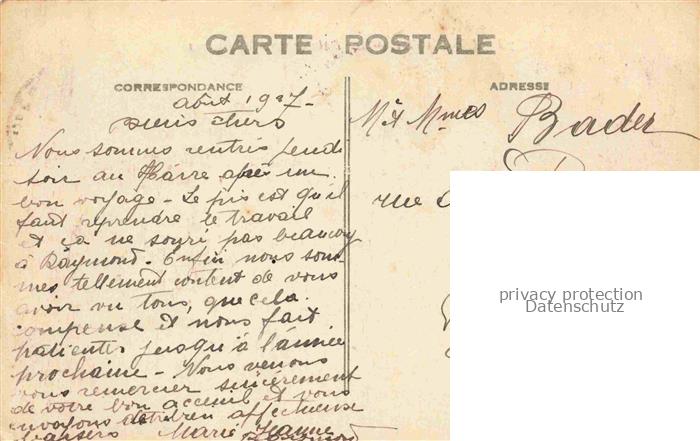 CARTE POSTALE
CORRESPONDANCE
ADRESSE
Août 1927-
Biens chers
Nous sommes rentrés jeudi
soir au Hâvre après un
bon voyage - Le pis est qu'il
faut reprendre le travail
et ça ne souri pas beaucoup
à Raymond. Enfin nous som-
mes tellement content de vous
avoir vu tous, que cela
compense et nous fait
patienter jusqu'à l'année
prochaine - Nous venons
vous remercier sincèrement
de votre bon acceuil et vous
envoyons de bien affectueuse
baisers Marie Jeanne
Raymond
Mr & Mmes Bader
rue
privacy protection
Datenschutz